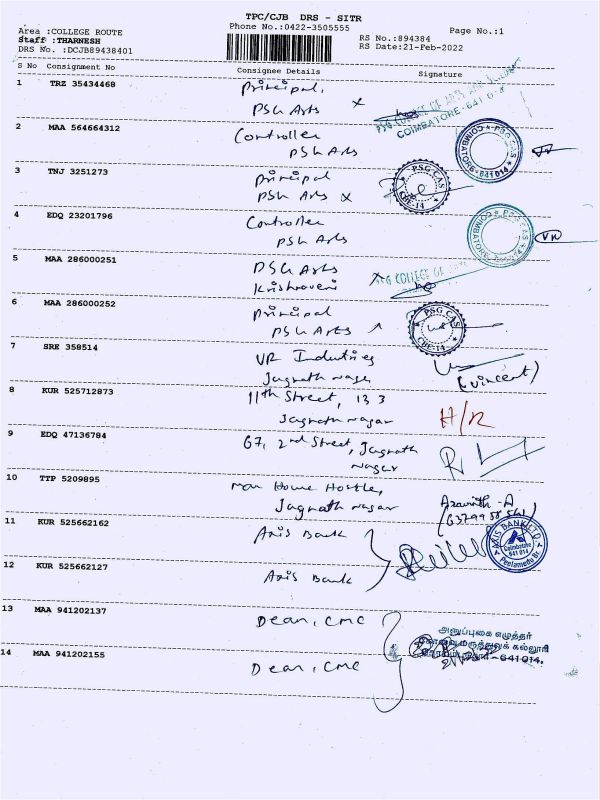 TPC/CJB DRS - SITR
Area :COLLEGE ROUTE Phone No.:0422-3505555 Page No.:1
Staff :THARNESH RS No.:894384
DRS No. :DCJB89438401 RS Date:21-Feb-2022
S No Consignment No Consignee Details Signature
1 TRZ 35434468 Principal,
PSG Arts x
PSG COLLEGE OF ARTS AND
COIMBATORE-641 014
2 MAA 564664312 Controller
PSG Arts
COIMBATORE 641014 PSG CAS
3 TNJ 3251273 Principal
PSG Arts x
PSG CAS CBE-14
4 EDQ 23201796 Controller
PSG Arts
COIMBATORE PSG CAS
VR
5 MAA 286000251 PSG Arts x
Krishnaveni
PSG COLLEGE OF ARTS
6 MAA 286000252 Principal
PSG Arts
PSG CAS CBE-14
7 SRE 358514 VR Industries
Jagnath nagar
(Vincent)
8 KUR 525712873 11th Street, 133
Jagnath nagar
H/R
9 EDQ 47136784 67, 2nd Street, Jagnath
nagar
10 TTP 5209895 Home Hostle,
Jagnath nagar
Aravinth-A
11 KUR 525662162 Axis Bank
AXIS BANK LTD.
Coimbatore
641 014
Peelamedu Br.
12 KUR 525662127 Axis Bank
13 MAA 941202137 Dean, CMC
அனுப்புகை எழுத்தர்
கோவை மருத்துவக் கல்லூரி
641014.
14 MAA 941202155 Dean, CMC